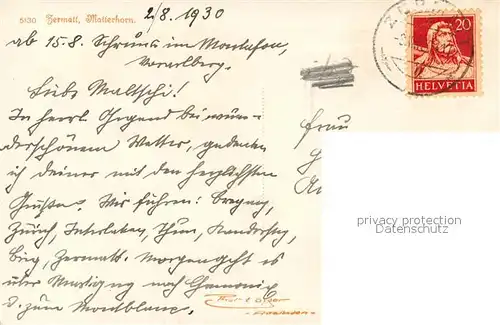 5130 Zermatt, Matterhorn.
2/8. 1930
ab 15.8. Schruns im Montafon,
Vorarlberg.
Liebe Maltschi!
In herrl. Gegend bei wun-
derschönem Wetter, gedenke
ich deiner mit den herzlichsten
Grüßen. Wir fuhren: Bregenz,
Zürich, Interlaken, Thun, Kandersteg,
Brig, Zermatt. Morgen geht es
über Martigny nach Chamonix
z. zum Montblanc.
Frau
20
HELVETIA
privacy protection
watermark